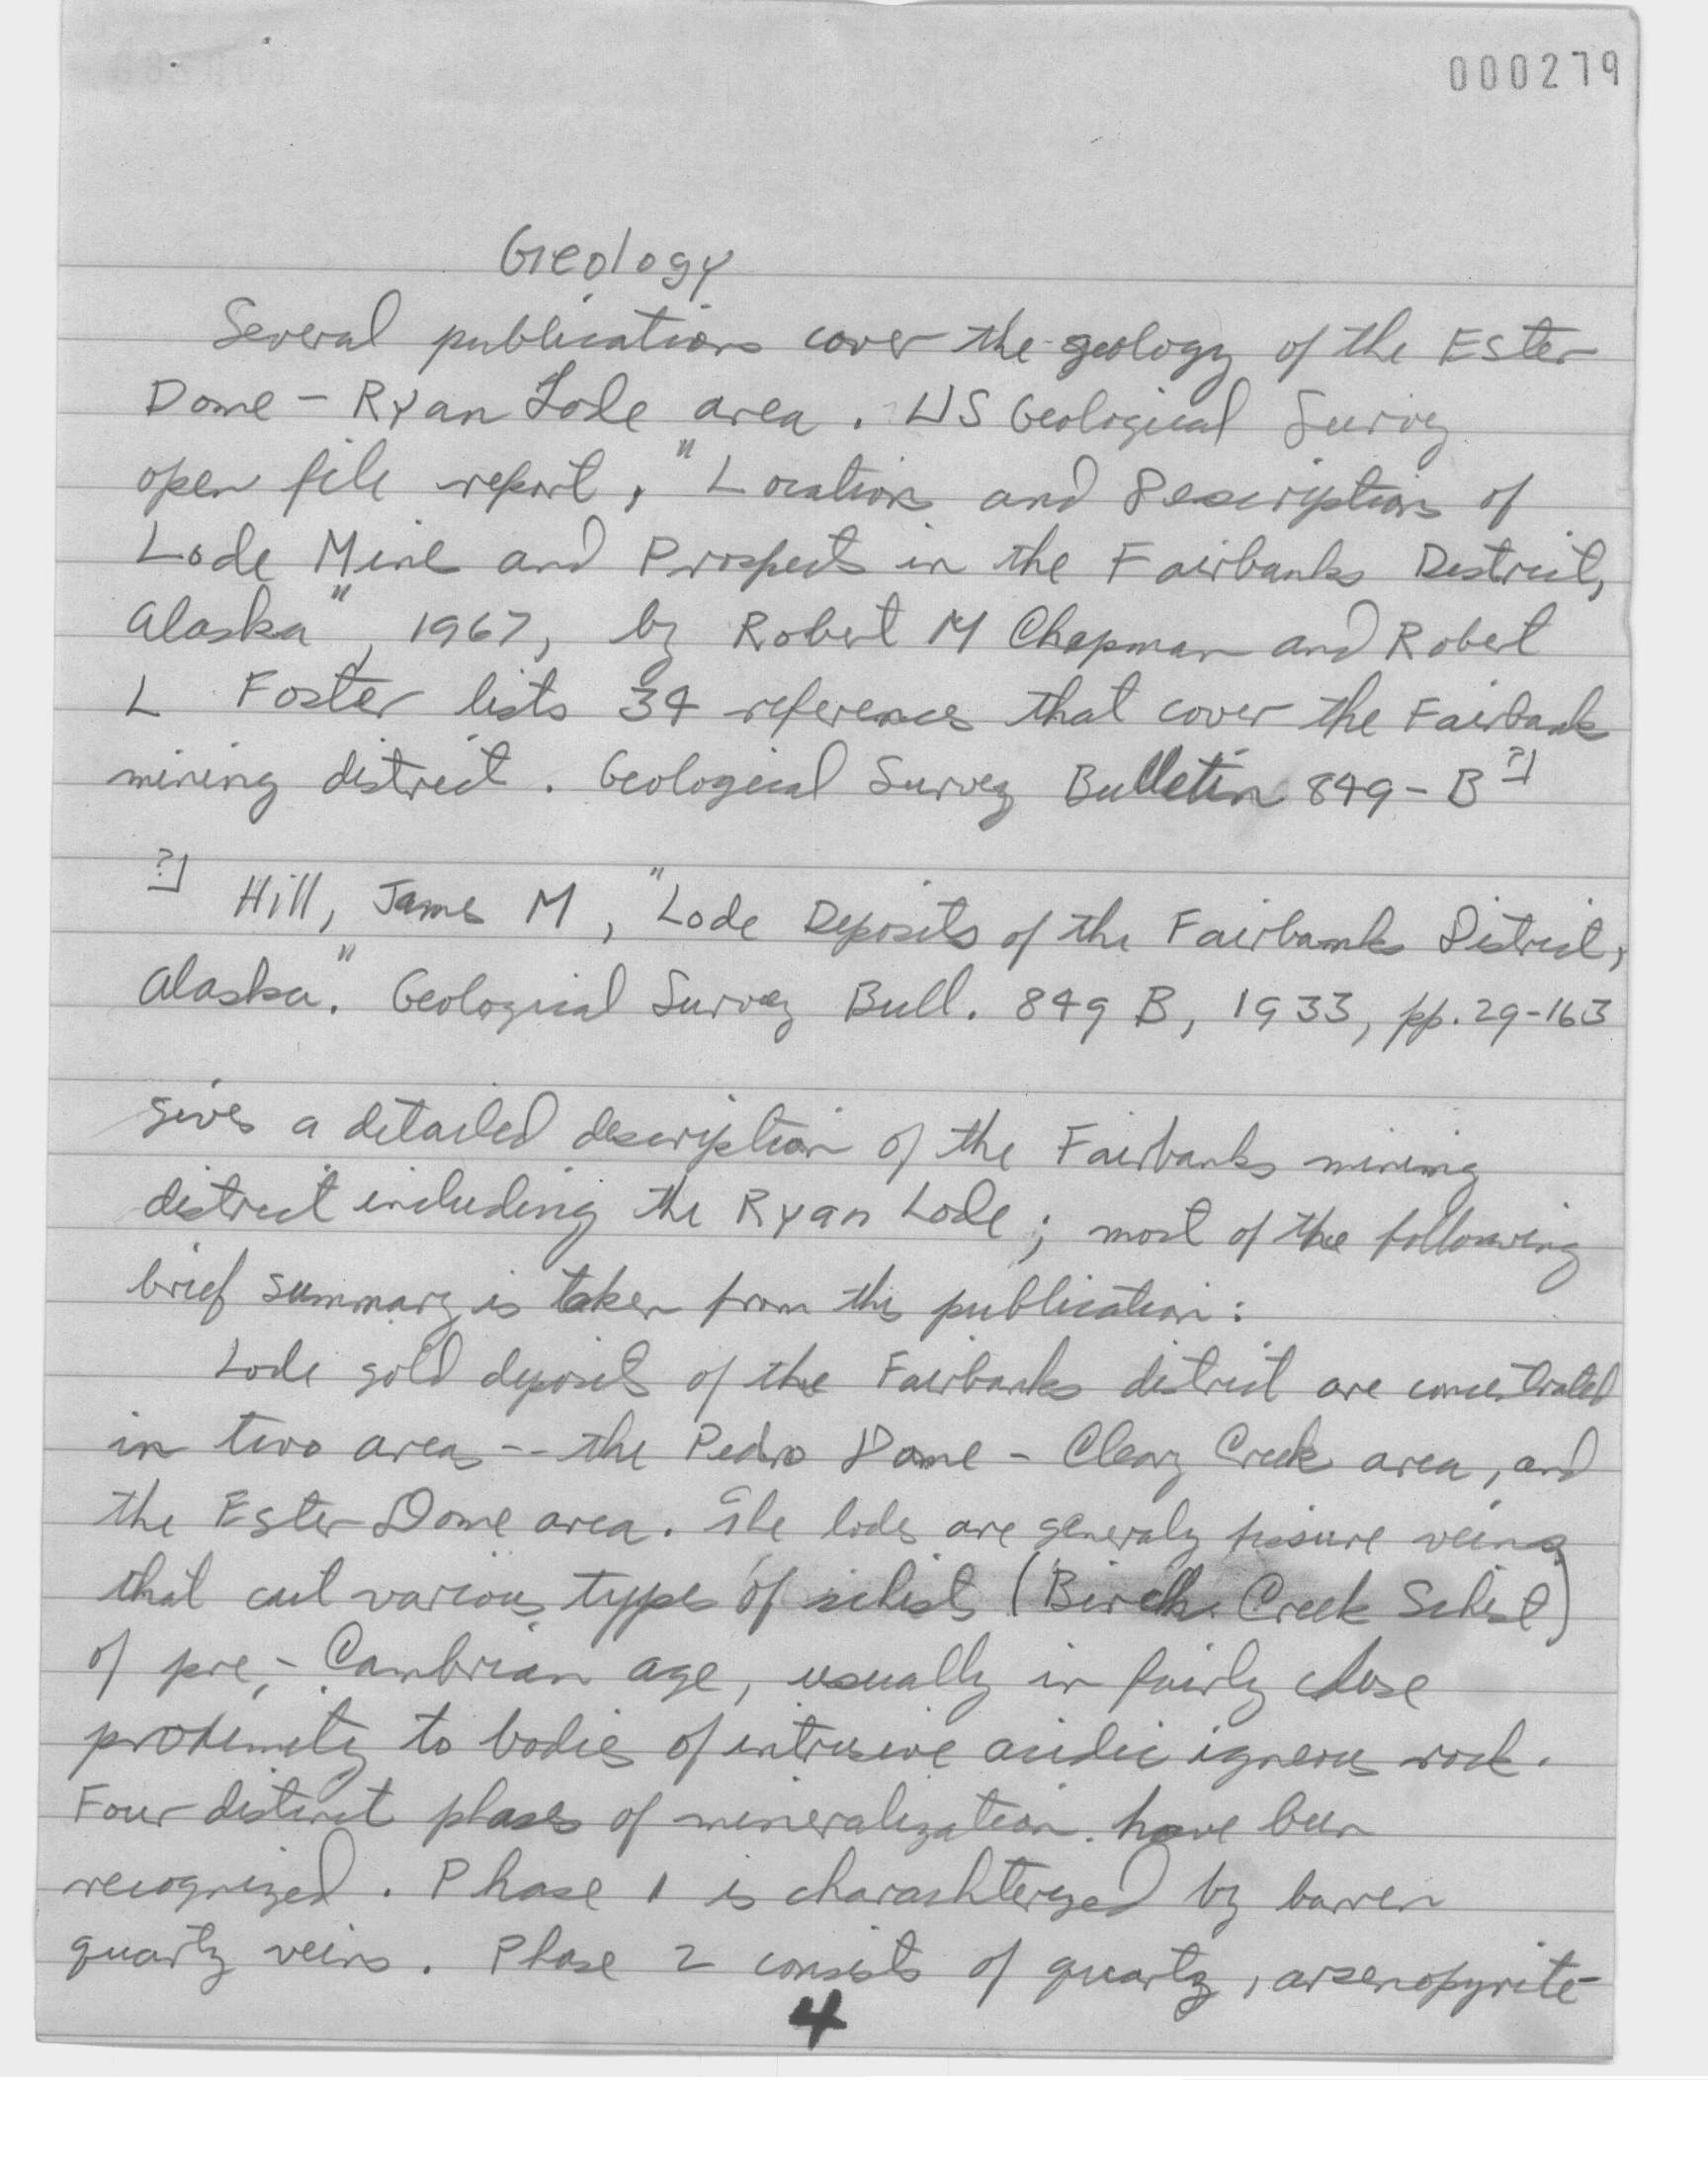 000279
Geology
Several publications cover the geology of the Ester
Dome - Ryan Lode area. US Geological Survey
open file report, "Location and Description of
Lode Mine and Prospects in the Fairbanks District,
Alaska", 1967, by Robert M Chapman and Robert
L Foster lists 34 references that cover the Fairbank
mining district. Geological Survey Bulletin 849-B ?/
?/ Hill, James M, "Lode Deposits of the Fairbanks District,
Alaska." Geological Survey Bull. 849 B, 1933, pp. 29-163
gives a detailed description of the Fairbanks mining
district including the Ryan Lode; most of the following
brief summary is taken from this publication:
Lode gold deposits of the Fairbanks district are concentrated
in two areas -- the Pedro Dome - Cleary Creek area, and
the Ester Dome area. The lodes are generaly fissure veins
that cut various types of schists (Birch Creek Schist)
of pre-Cambrian age, usually in fairly close
proximity to bodies of intrusive acidic igneous rock.
Four distinct phases of mineralization have been
recognized. Phase 1 is charachterized by barren
quartz veins. Phase 2 consists of quartz, arsenopyrite-
4